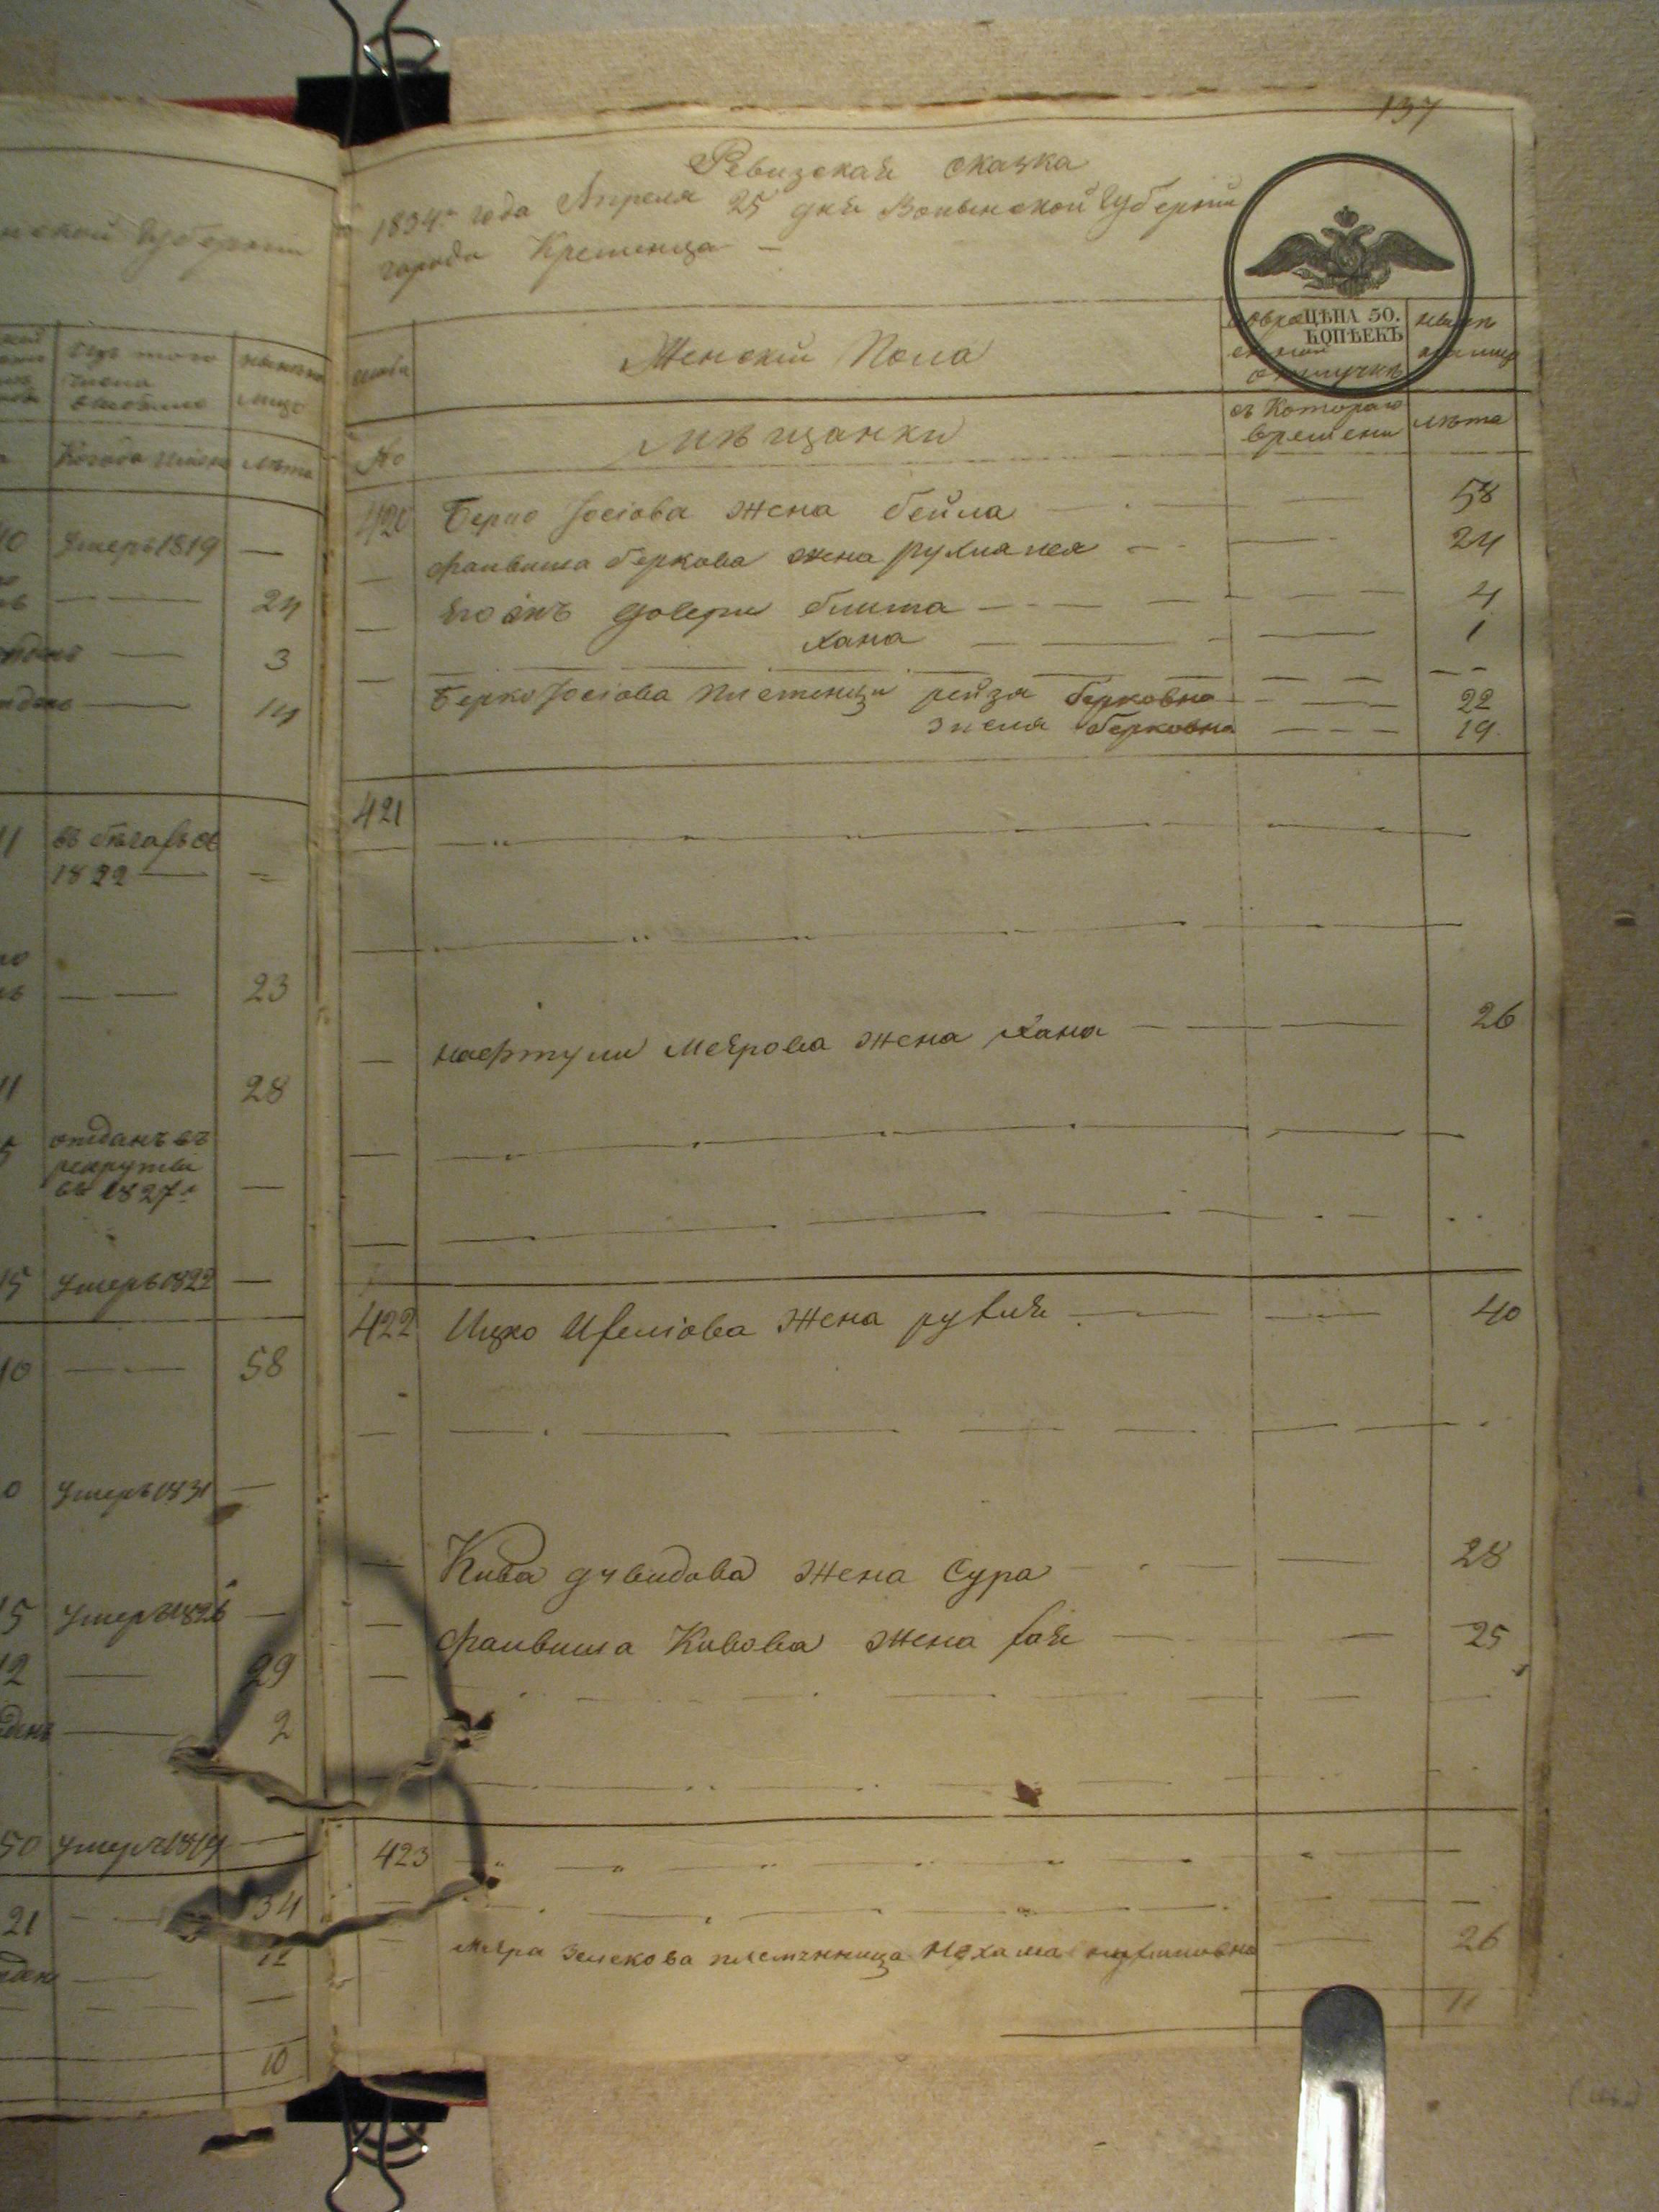 137
Ревизская сказка
1834го года Апреля 25 дня Волынской Губернии
города Кременца
ЦѢНА 50.
КОПѢЕКЪ
Женскій Пола
отлучкѣ
Мѣщанки
съ Котораго
времени
лѣта
№
420 Берко Іосіова жена бейла 58
файвиша беркова жена рухля лея 24
его ихъ дочери блима 4
хана 1
Берко Іосіова племеница рейзя берковна 22
энеля берковна 19
421
нафтули Меерова жена хана 26
422 Ицко жена 40
Кива давидова жена Сура 28
файвиша Кивова жена хая 25
423
Меера Зелекова племянница Нехама 26
11
Изъ того
числа
выбыло
нынѣ
лицо
Когда именно
лѣта
Умеръ 1819
24
3
14
въ бѣгахъ съ
1822
23
28
отданъ въ
рекруты
въ 1827г
15 Умеръ 1822
10 58
Умеръ 1831
15 Умеръ 1826
12 29
2
50 Умеръ 1819
21 34
12
10